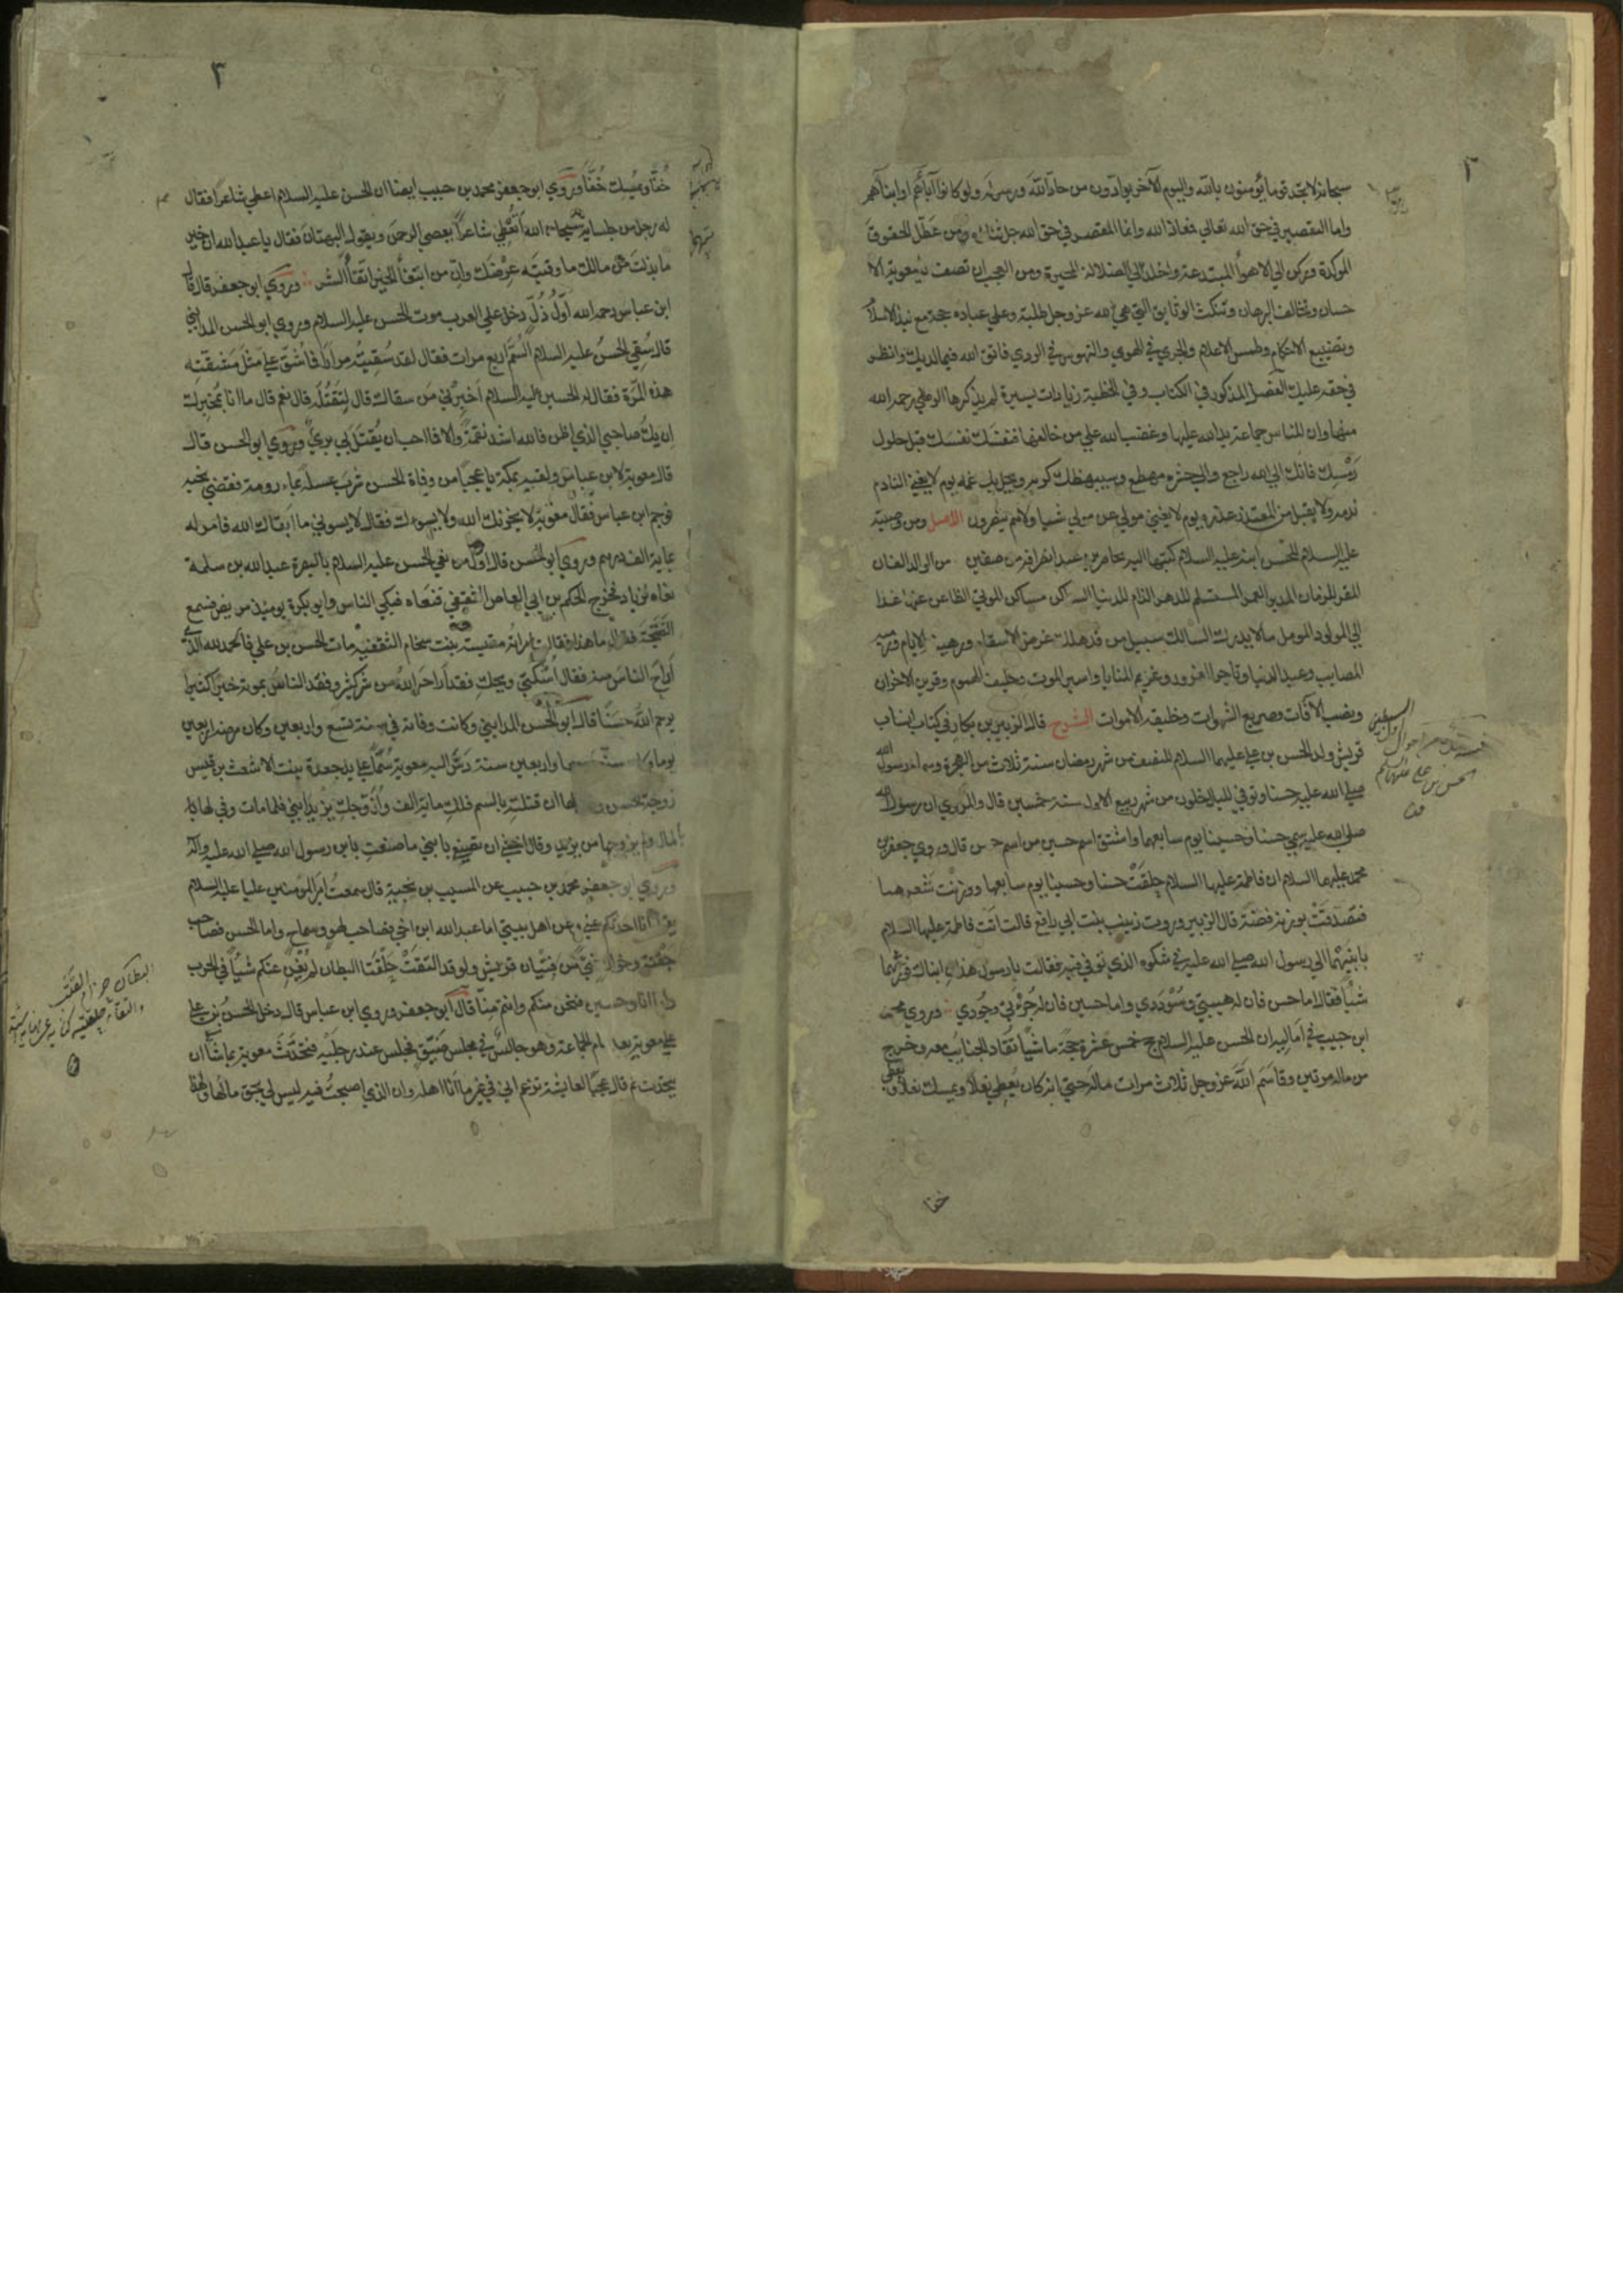 ٢
سبحانه لا تجد قوما يؤمنون بالله واليوم الآخر يوادون من حاد الله ورسوله ولو كانوا آباءهم او ابناءهم
واما التقصير في حق الله تعالى فمعاذ الله وانما المقصر في حق الله جل ثناؤه من عطل الحقوق
الموكدة وركن الى الاهواء المبتدعة واخلد الى الضلالة المحيرة ومن العجب ان تصف يا معوية الا
حسان وتخالف البرهان وتنكث الوثايق التي هي لله عز وجل طلبة وعلى عباده حجة مع نبذ الاسلام
وتضييع الاحكام وطمس الاعلام والجري في الهوى والتهوس في الردى فاتق الله فيما لديك وانظر
في حقه عليك الفصل المذكور في الكتاب وفي الخطبة زيادات يسيرة لم يذكرها الرضي رحمه الله
منها وان للناس جماعة يد الله عليها وغضب الله على من خالفها فنفسك نفسك قبل حلول
رمسك فانك الى الله راجع والى حشره مهطع وسيبهظك كربه ويحل بك غمه يوم لا يغني النادم
ندمه ولا يقبل من المعتذر عذره يوم لا يغني مولى عن مولى شيا ولا هم ينصرون الاصل ومن وصية
عليه السلام للحسن ابنه عليه السلام كتبها اليه بحاضرين عند انصرافه من صفين من الوالد الفان
المقر للزمان المدبر العمر المستسلم للدهر الذام للدنيا الساكن مساكن الموتى الظاعن عنها غدا
الى المولود المومل ما لا يدرك السالك سبيل من قد هلك غرض الاسقام ورهينة الايام ورمية
المصايب وعبد الدنيا وتاجر الغرور وغريم المنايا واسير الموت وحليف الهموم وقرين الاحزان
ونصب الآفات وصريع الشهوات وخليفة الاموات الشرح قال الزبير بن بكار في كتاب انساب
قريش ولد الحسن بن علي عليهما السلام للنصف من شهر رمضان سنة ثلاث من الهجرة وسماه رسول الله
صلى الله عليه حسنا وتوفي لليال خلون من شهر ربيع الاول سنة خمسين قال والمروي ان رسول الله
صلى الله عليه سمى حسنا وحسينا يوم سابعهما واشتق اسم حسين من اسم حسن قال وروى جعفر بن
محمد عليهما السلام ان فاطمة عليها السلام حلقت حسنا وحسينا يوم سابعها ووزنت شعرهما
فتصدقت بوزنه فضة قال الزبير وروت زينب بنت ابي رافع قالت اتت فاطمة عليها السلام
بابنيهما الى رسول الله صلى الله عليه في شكوه الذي توفي فيه فقالت يا رسول هذان ابناك فورثهما
شيا فقال اما حسن فان له هيبتي وسؤددي واما حسين فان له جرءتي وجودي وروى محمد
ابن حبيب في اماليه ان الحسن عليه السلام حج خمس عشرة حجة ماشيا تقاد الجنايب معه وخرج
من ماله مرتين وقاسم الله عز وجل ثلاث مرات ماله حتى انه كان يعطي نعلا ويمسك نعلا ويعطي
خفا
الحسن بن علي عليهما السلام
٣
خفا ويمسك خفا وروى ابو جعفر محمد بن حبيب ايضا ان الحسن عليه السلام اعطى شاعرا فقال
له رجل من جلسايه سبحان الله اتعطي شاعرا يعصي الرحمن ويقول البهتان فقال يا عبد الله ان خير
ما بذلت من مالك ما وقيت به عرضك وان من ابتغاء الخير اتقاء الشر وروى ابو جعفر قال قال
ابن عباس رحمه الله اول ذل دخل على العرب موت الحسن عليه السلام وروى ابو الحسن المدايني
قال سقي الحسن عليه السلام السم اربع مرات فقال لقد سقيته مرارا فما شق علي مثل مشقته
هذه المرة فقال له الحسين عليه السلام اخبرني من سقاك قال لتقتله قال نعم قال ما انا بمخبرك
ان يك صاحبي الذي اظن فالله اشد نقمة والا فما احب ان يقتل بي بري وروى ابو الحسن قال
قال معوية لابن عباس ولقيه بمكة يا عجبا من وفاة الحسن شرب عسلة بماء رومة فقضى نحبه
فوجم ابن عباس فقال معوية لا يحزنك الله ولا يسوءك فقال لا يسوءني ما ابقاك الله فامر له
بماية الف درهم وروى ابو الحسن قال اول من نعى الحسن عليه السلام بالبصرة عبد الله بن سلمة
نعاه لزياد فخرج الحكم بن ابي العاص الثقفي فنعاه فبكى الناس وابو بكرة يومئذ مريض فسمع
الضجة فقال ما هذا فقالت امراته ميسة بنت سخام الثقفية مات الحسن بن علي فالحمد لله الذي
اراح الناس منه فقال اسكتي ويحك فقد اراحه الله من شر كثير وفقد الناس بموته خيرا كثيرا
يرحم الله حسنا قال ابو الحسن المدايني وكانت وفاته في سنة تسع واربعين وكان مرضه اربعين
يوما وكانت سنه سبعا واربعين سنة دس اليه معوية سما على يد جعدة بنت الاشعث بن قيس
زوجة الحسن وقال لها ان قتلته بالسم فلك ماية الف وازوجك يزيد ابني فلما مات وفى لها
بالمال ولم يزوجها من يزيد وقال اخشى ان تصنعي بابني ما صنعت بابن رسول الله صلى الله عليه واله
وروى ابو جعفر محمد بن حبيب عن المسيب بن نجبة قال سمعت امير المؤمنين عليا عليه السلام
يقول انا احدثكم عني وعن اهل بيتي اما عبد الله ابن اخي فصاحب لهو وسماح واما الحسن فصاحب
جفنة وخوان فتى من فتيان قريش ولو قد التقت حلقتا البطان لم يغن عنكم شيا في الحرب
واما انا وحسين فنحن منكم وانتم منا قال ابو جعفر وروى ابن عباس قال دخل الحسن بن علي
على معوية بعد عام الجماعة وهو جالس في مجلس ضيق فجلس عند رجليه فتحدث معوية بما شاء ان
يتحدث ثم قال عجبا لعايشة تزعم اني في غير ما انا اهله وان الذي اصبحت فيه ليس لي بحق ما لها ولهذا
البطان حزام القتب